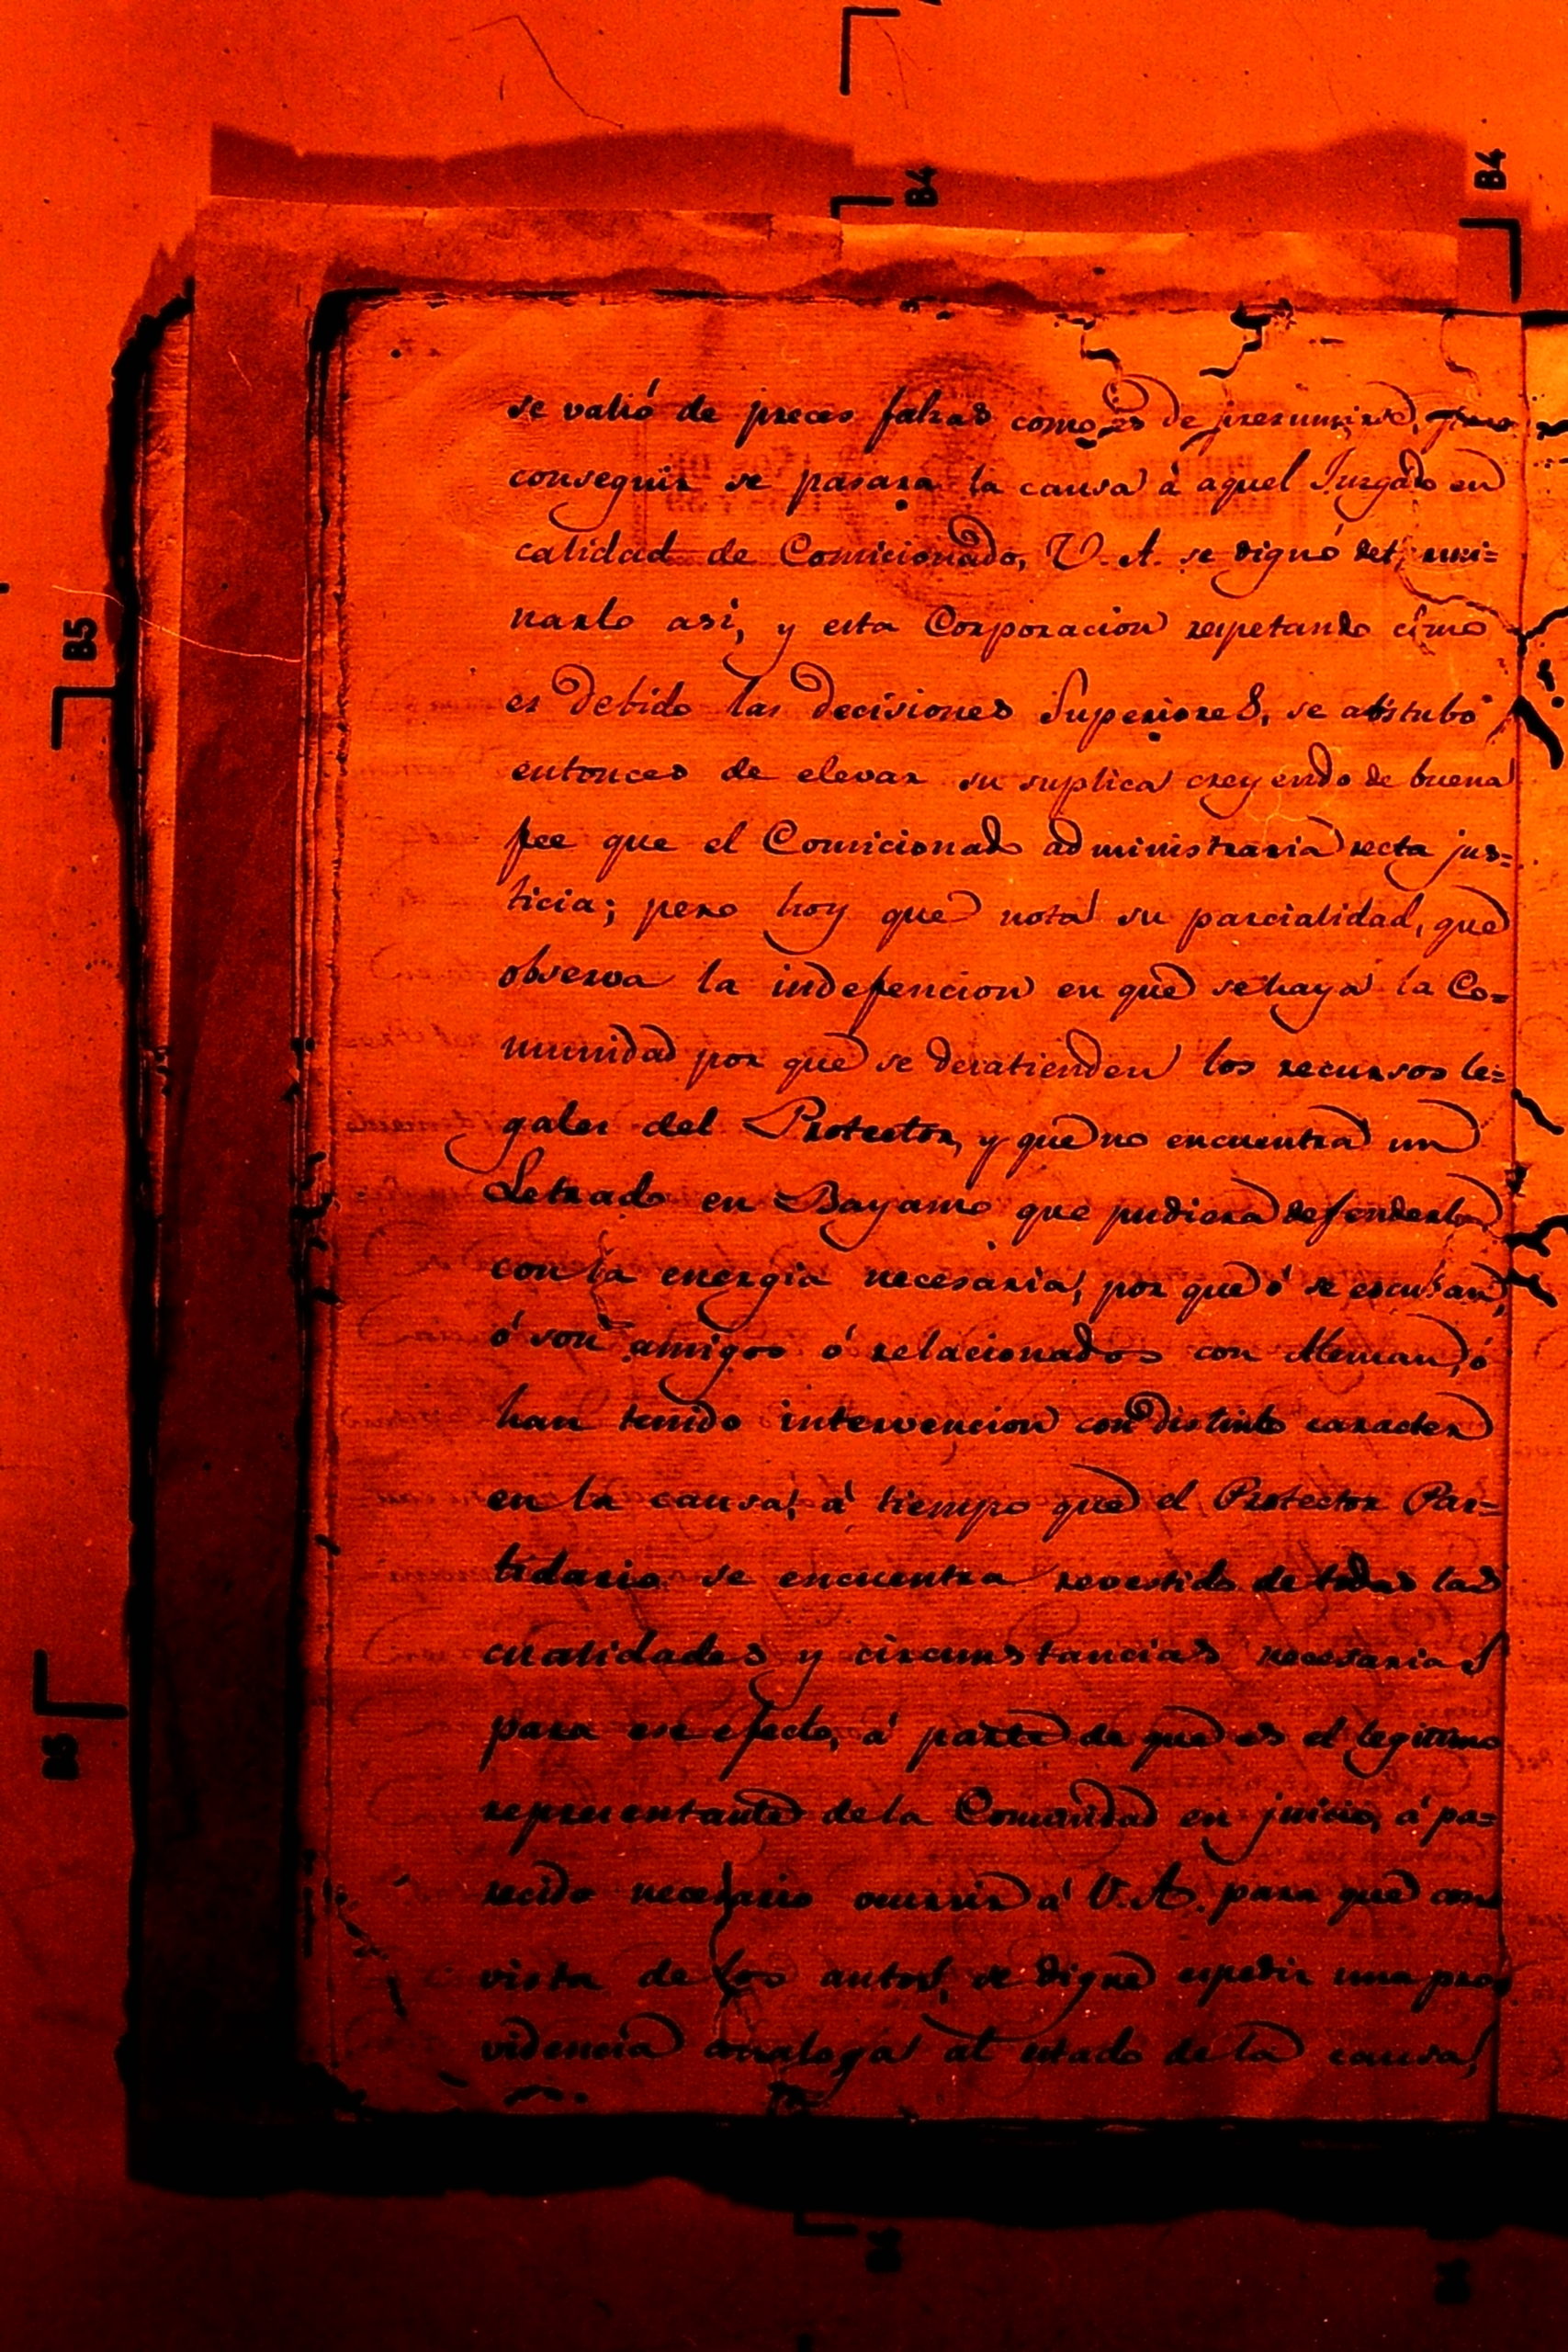 B4
B4
B5
se valió de preces falsas como es de presumirse, para
conseguir se pasara la causa á aquel Juzgado en
calidad de Comicionado, V. A. se dignó determi=
narlo asi, y esta Corporacion respetando cómo
es debido las decisiones Superiores, se abstubo
entonces de elevar su suplica creyendo de buena
fee que el Comicionado administraria recta jus=
ticia; pero hoy que nota su parcialidad, que
observa la indefencion en que se haya la Co=
munidad por que se desatienden los recursos le=
gales del Protector, y que no encuentra un
Letrado en Bayamo que pudiera defenderla
con la energia necesaria, por que ó se escusan,
ó son amigos ó relacionados con Aleman, ó
han tenido intervencion con distinto caracter
en la causa, á tiempo que el Protector Par=
tidario se encuentra revestido de todas las
cualidades y circunstancias necesarias
para ese efecto, á parte de que es el legitimo
representante de la Comunidad en juicio, á pa=
recido necesario ocurrir á V. A. para que con
vista de los autos, se digne espedir una pro
videncia analoga al estado de la causa,
B5
B4
B4